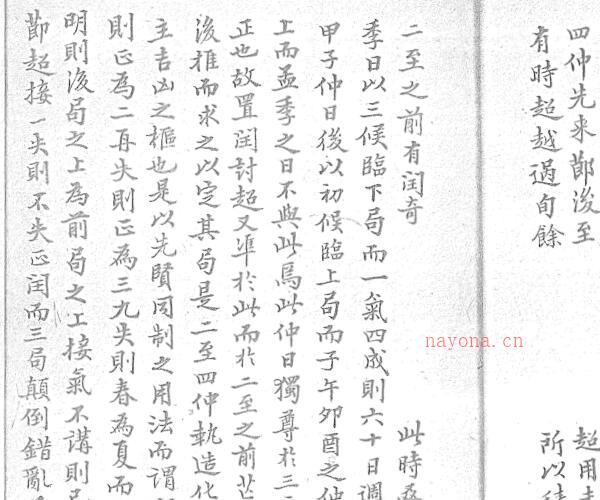 四仲先来節後至
超用
有時超越過旬餘
所以
二至之前有闰奇
此時
季日以三候臨下局而一氣四成則六十日調
甲子仲日後以初候臨上局而子午卯酉之仲
上而孟季之日不與此焉此仲日獨尊於三
正也故置闰討超又凖於此而於二至之前
後推而求之以定其局是二至四仲執造化
主吉凶之樞也是以先賢因制之用法而謂
則正為二再失則正為三九失則春為夏而
明則後局之上為前局之工接氣不講則
節超接一失則不失正闰而三局顛倒錯亂
nayona.cn